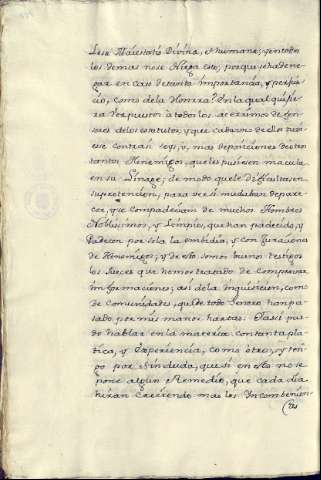 Lesæ Maiestatis Divina, Ahumana; y en todos
los demas no se Niega esto; porque se ha de ne-
gar en caso de tanta importancia, y perjui-
cio, como de la Honrra? En la qual quisie-
ra Yo repusiera a todos los acerrimos defen-
sores de los estatutos, y que cada uno de ellos tuvi-
esse contra si seys, v, mas deposiciones de otros
tantos Henemigos, que les pusiesen macula
en su Linage; de modo que le dificultasen
su pretencion, para ver si mudaban de pare-
cer, y que se compadecian de muchos Hombres
Nobilissimos, y Limpios, que han padecido, y
Padecen por sola la embidia, y conjuraciones
de Henemigos; y de esto somos buenos testigos
los Jueces que hemos tratado de Comprovar
informaciones; asi de la Inquisicion, como
de Comunidades, que de todo Genero han pa-
sado por mis manos hartas: Y assi pu-
do hablar en la materia con tanta pla-
tica, y Experiencia, como otro; y ten-
go por sin duda, que si en esto no se
pone algun Remedio, que cada dia
hiran Creciendo mas los Yncombenien-
tes